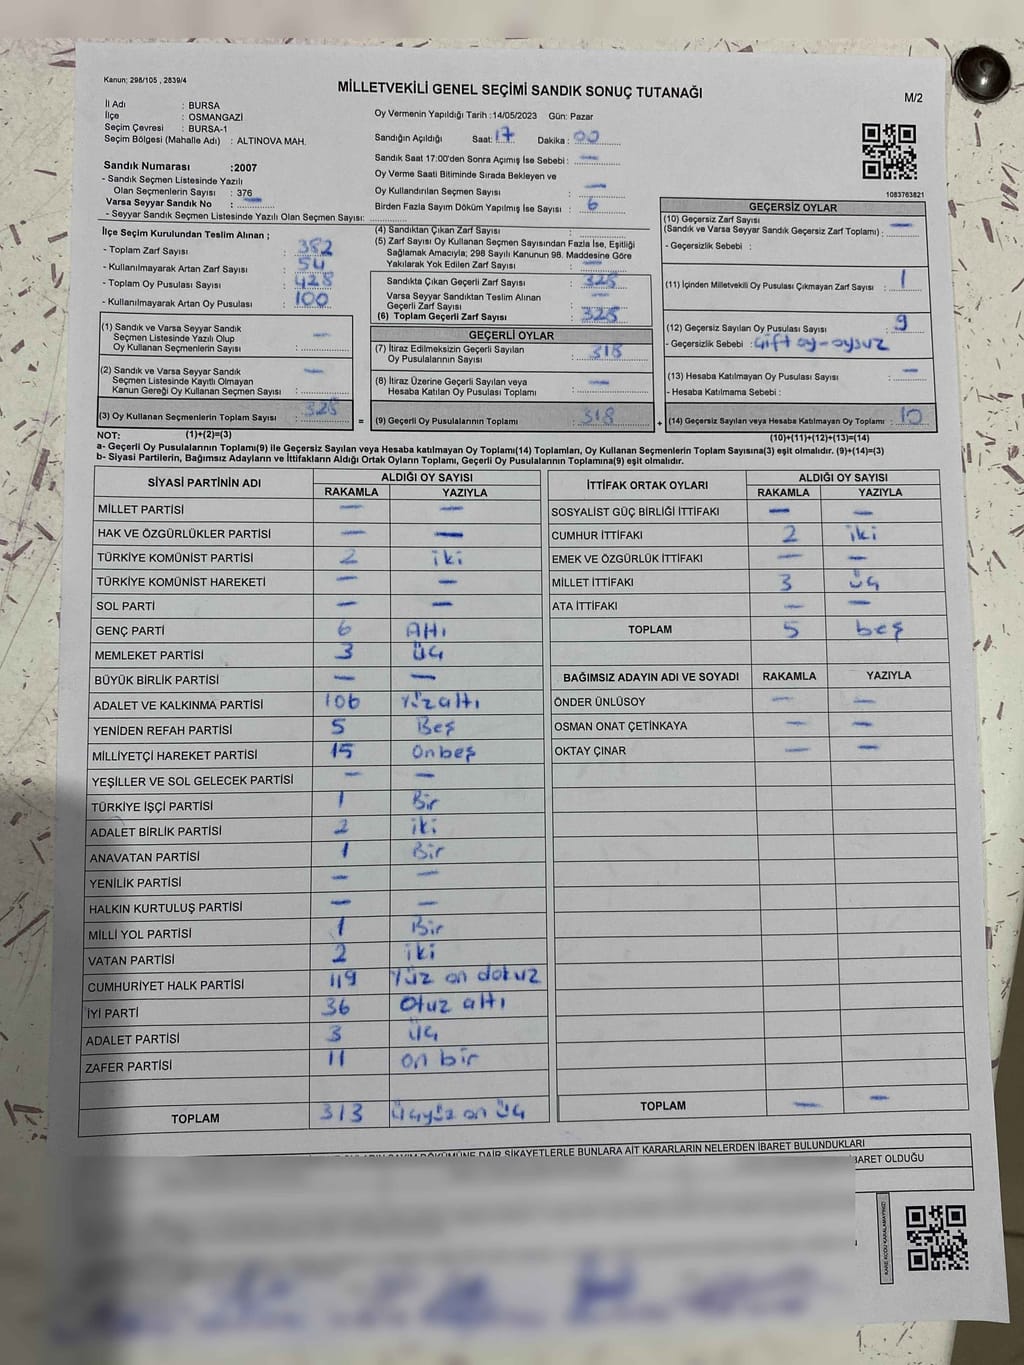 Kanun; 298/105 , 2839/4
MİLLETVEKİLİ GENEL SEÇİMİ SANDIK SONUÇ TUTANAĞI
M/2
İl Adı : BURSA
İlçe : OSMANGAZİ
Seçim Çevresi : BURSA-1
Seçim Bölgesi (Mahalle Adı) : ALTINOVA MAH.
Sandık Numarası :2007
- Sandık Seçmen Listesinde Yazılı
Olan Seçmenlerin Sayısı : 376
Varsa Seyyar Sandık No : —
- Seyyar Sandık Seçmen Listesinde Yazılı Olan Seçmen Sayısı:
Oy Vermenin Yapıldığı Tarih :14/05/2023 Gün: Pazar
Sandığın Açıldığı Saat: 17 Dakika : 00
Sandık Saat 17:00'den Sonra Açımış İse Sebebi : —
Oy Verme Saati Bitiminde Sırada Bekleyen ve
Oy Kullandırılan Seçmen Sayısı : —
Birden Fazla Sayım Döküm Yapılmış İse Sayısı : 6
1083763821
İlçe Seçim Kurulundan Teslim Alınan ;
- Toplam Zarf Sayısı : 382
- Kullanılmayarak Artan Zarf Sayısı : 54
- Toplam Oy Pusulası Sayısı : 428
- Kullanılmayarak Artan Oy Pusulası : 100
(1) Sandık ve Varsa Seyyar Sandık
Seçmen Listesinde Yazılı Olup
Oy Kullanan Seçmenlerin Sayısı : —
(2) Sandık ve Varsa Seyyar Sandık
Seçmen Listesinde Kayıtlı Olmayan
Kanun Gereği Oy Kullanan Seçmen Sayısı : —
(3) Oy Kullanan Seçmenlerin Toplam Sayısı : 328
(1)+(2)=(3)
(4) Sandıktan Çıkan Zarf Sayısı :
(5) Zarf Sayısı Oy Kullanan Seçmen Sayısından Fazla İse, Eşitliği
Sağlamak Amacıyla; 298 Sayılı Kanunun 98. Maddesine Göre
Yakılarak Yok Edilen Zarf Sayısı : —
Sandıkta Çıkan Geçerli Zarf Sayısı : 328
Varsa Seyyar Sandıktan Teslim Alınan
Geçerli Zarf Sayısı : —
(6) Toplam Geçerli Zarf Sayısı : 328
GEÇERLİ OYLAR
(7) İtiraz Edilmeksizin Geçerli Sayılan
Oy Pusulalarının Sayısı : 318
(8) İtiraz Üzerine Geçerli Sayılan veya
Hesaba Katılan Oy Pusulası Toplamı : —
= (9) Geçerli Oy Pusulalarının Toplamı : 318
GEÇERSİZ OYLAR
(10) Geçersiz Zarf Sayısı
(Sandık ve Varsa Seyyar Sandık Geçersiz Zarf Toplamı) : —
- Geçersizlik Sebebi :
(11) İçinden Milletvekili Oy Pusulası Çıkmayan Zarf Sayısı : 1
(12) Geçersiz Sayılan Oy Pusulası Sayısı : 9
- Geçersizlik Sebebi : Çift oy-oysuz
(13) Hesaba Katılmayan Oy Pusulası Sayısı : —
- Hesaba Katılmama Sebebi :
+ (14) Geçersiz Sayılan veya Hesaba Katılmayan Oy Toplamı : 10
(10)+(11)+(12)+(13)=(14)
NOT:
a- Geçerli Oy Pusulalarının Toplamı(9) ile Geçersiz Sayılan veya Hesaba katılmayan Oy Toplamı(14) Toplamları, Oy Kullanan Seçmenlerin Toplam Sayısına(3) eşit olmalıdır. (9)+(14)=(3)
b- Siyasi Partilerin, Bağımsız Adayların ve İttifakların Aldığı Ortak Oyların Toplamı, Geçerli Oy Pusulalarının Toplamına(9) eşit olmalıdır.
SİYASİ PARTİNİN ADI ALDIĞI OY SAYISI
RAKAMLA YAZIYLA
MİLLET PARTİSİ — —
HAK VE ÖZGÜRLÜKLER PARTİSİ — —
TÜRKİYE KOMÜNİST PARTİSİ 2 iki
TÜRKİYE KOMÜNİST HAREKETİ — —
SOL PARTİ — —
GENÇ PARTİ 6 Altı
MEMLEKET PARTİSİ 3 üç
BÜYÜK BİRLİK PARTİSİ — —
ADALET VE KALKINMA PARTİSİ 106 Yüzaltı
YENİDEN REFAH PARTİSİ 5 Beş
MİLLİYETÇİ HAREKET PARTİSİ 15 Onbeş
YEŞİLLER VE SOL GELECEK PARTİSİ — —
TÜRKİYE İŞÇİ PARTİSİ 1 Bir
ADALET BİRLİK PARTİSİ 2 iki
ANAVATAN PARTİSİ 1 Bir
YENİLİK PARTİSİ — —
HALKIN KURTULUŞ PARTİSİ — —
MİLLİ YOL PARTİSİ 1 Bir
VATAN PARTİSİ 2 iki
CUMHURİYET HALK PARTİSİ 119 Yüz on dokuz
İYİ PARTİ 36 Otuz altı
ADALET PARTİSİ 3 üç
ZAFER PARTİSİ 11 on bir
TOPLAM 313 üçyüz on üç
İTTİFAK ORTAK OYLARI ALDIĞI OY SAYISI
RAKAMLA YAZIYLA
SOSYALİST GÜÇ BİRLİĞİ İTTİFAKI — —
CUMHUR İTTİFAKI 2 iki
EMEK VE ÖZGÜRLÜK İTTİFAKI — —
MİLLET İTTİFAKI 3 üç
ATA İTTİFAKI — —
TOPLAM 5 beş
BAĞIMSIZ ADAYIN ADI VE SOYADI RAKAMLA YAZIYLA
ÖNDER ÜNLÜSOY — —
OSMAN ONAT ÇETİNKAYA — —
OKTAY ÇINAR — —
TOPLAM — —
DÖKÜMÜNE DAİR ŞİKAYETLERLE BUNLARA AİT KARARLARIN NELERDEN İBARET BULUNDUKLARI
İBARET OLDUĞU
KARE KODU KARALAMAYINIZ!